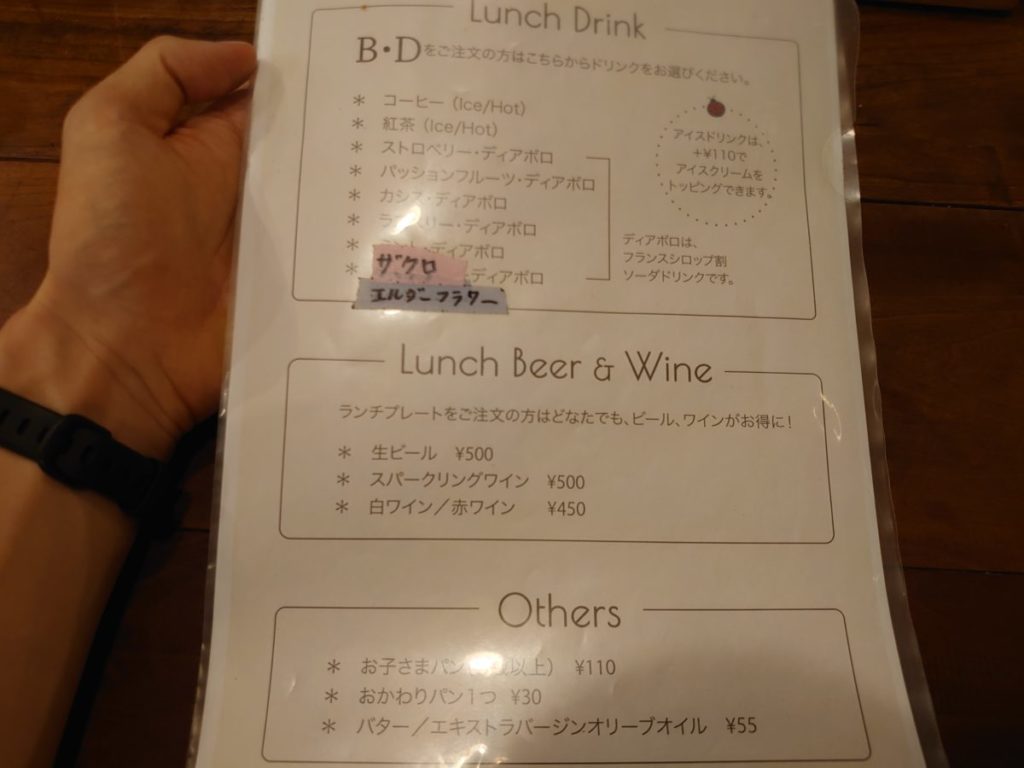 Lunch Drink
B・Dをご注文の方はこちらからドリンクをお選びください。
* コーヒー (Ice/Hot)
* 紅茶 (Ice/Hot)
* ストロベリー・ディアボロ
* パッションフルーツ・ディアボロ
* カシス・ディアボロ
* ・ディアボロ
* ・ディアボロ
ザクロ
* ・ディアボロ
エルダーフラワー
アイスドリンクは、
+¥110で
アイスクリームを
トッピングできます。
ディアボロは、
フランスシロップ割
ソーダドリンクです。
Lunch Beer & Wine
ランチプレートをご注文の方はどなたでも、ビール、ワインがお得に!
* 生ビール ¥500
* スパークリングワイン ¥500
* 白ワイン/赤ワイン ¥450
Others
* お子さまパン 以上) ¥110
* おかわりパン1つ ¥30
* バター/エキストラバージンオリーブオイル ¥55